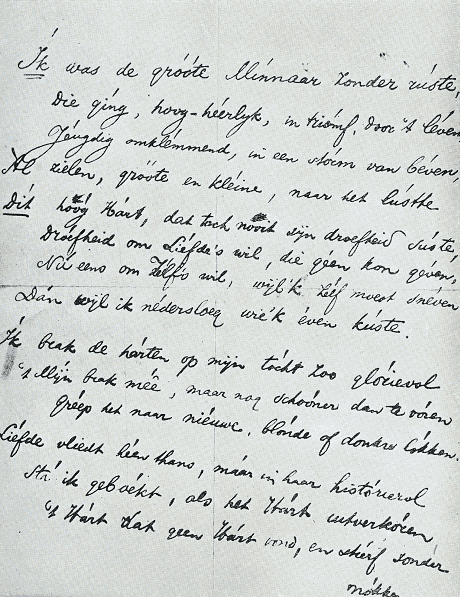 Ík was de gróóte Mínnaar zonder rúste,
Die gíng, hoog-héérlyk, in triómf, door 't léven
Jéugdig omklémmend, in een storm van béven,
Al zielen, gróóte en kleine, naar het lústte
Dít hóóg Hárt, dat toch nooit zijn droefheid súste,
Dróefheid om Líefde's wil, die geen kon géven,
Nú eens om Zélfs wil, wijl 'k zélf moest snéven
Dán wijl ik nédersloeg wie 'k éven kúste.
Ík brak de hárten op mijn tócht zoo glóeievol
't Míjn brak méé, maar nog schóóner dan te vóren
Gréép het naar niéuwe, blónde of donkre lókken.
Líefde vliedt héén thans, máár in haar histórierol
Stá ik gebóekt, als het Hárt uitverkóren
't Hárt dat geen Hárt vond, en stíerf zonder
nókken